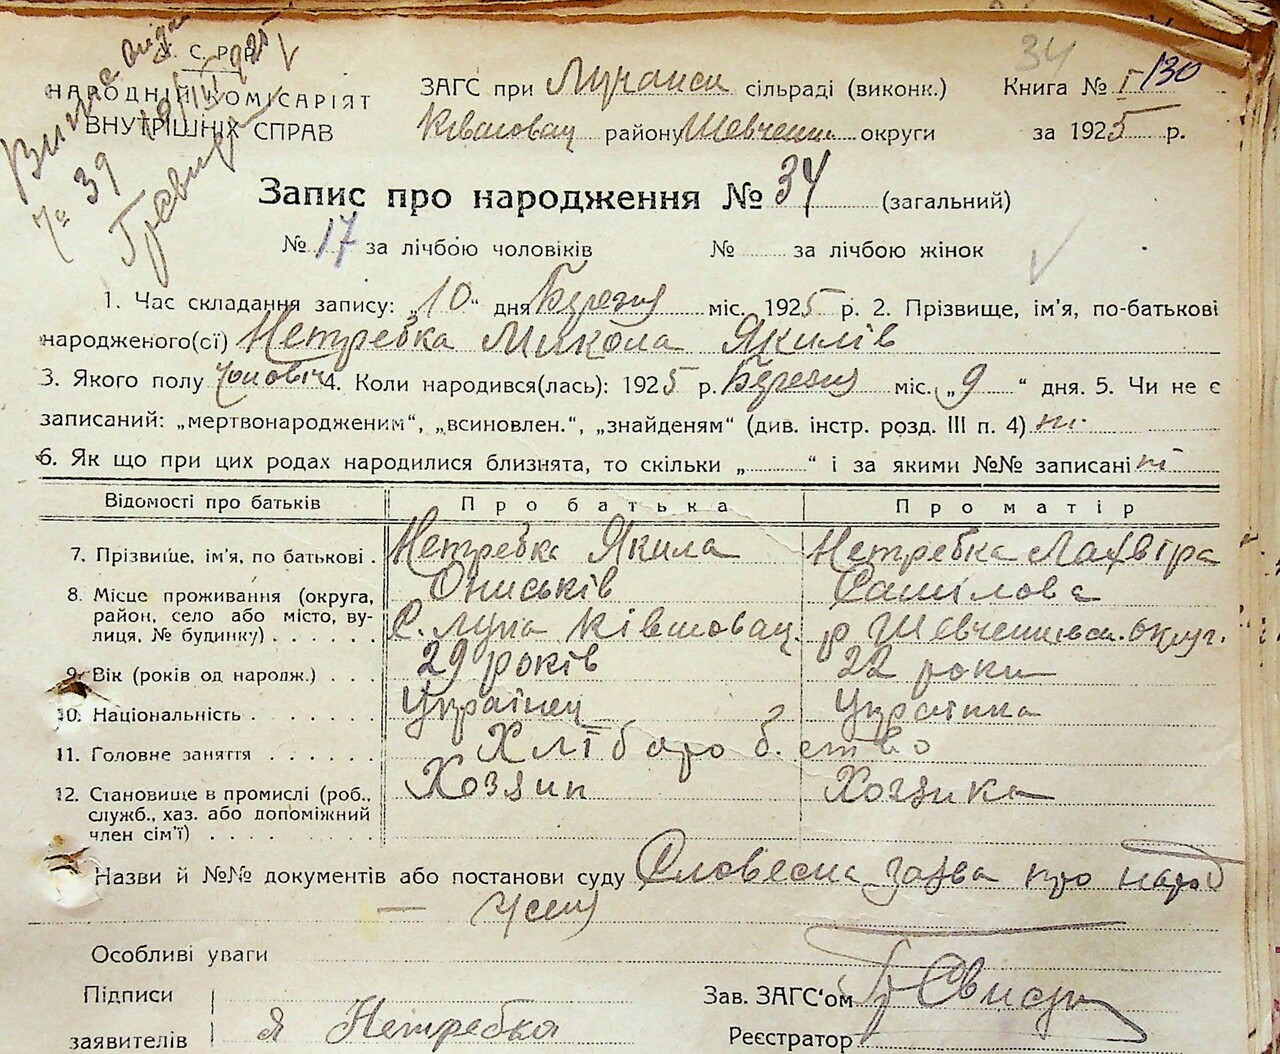 34
У. С. Р. Р.
НАРОДНІЙ КОМІСАРІЯТ
ВНУТРІШНІХ СПРАВ
№ 39
ЗАГС при сільраді (виконк.)
району Шевченк. округи
Книга № I/30
за 1925 р.
Запис про народження № 34 (загальний)
№ 17 за лічбою чоловіків № за лічбою жінок
1. Час складання запису: „10“ дня Березня міс. 1925 р. 2. Прізвище, ім'я, по-батькові
народженого(сі) Нетребка Микола Якилів
3. Якого полу чоловіч 4. Коли народився(лась): 1925 р. Березня міс. „9“ дня. 5. Чи не є
записаний: „мертвонародженим“, „всиновлен.“, „знайденям“ (див. інстр. розд. III п. 4) ні
6. Як що при цих родах народилися близнята, то скільки „ “ і за якими №№ записані ні
Відомості про батьків Про батька Про матір
7. Прізвище, ім'я, по батькові . Нетребка Якила Нетребка
Ониськів Самілова
8. Місце проживання (округа,
район, село або місто, ву-
лиця, № будинку) . . . . . . С. р Шевченківск. округ.
9. Вік (років од народж.) . . . 29 років 22 роки
10. Національність . . . . . . . Українец Українка
11. Головне заняття . . . . . . Хліборобство
12. Становище в промислі (роб., Хозяин Хозяика
служб., хаз. або допоміжний
член сім'ї) . . . . . . . .
Назви й №№ документів або постанови суду Словесна заява про народ
— ження
Особливі уваги
Підписи
заявителів я Нетребка
Зав. ЗАГС'ом
Реєстратор